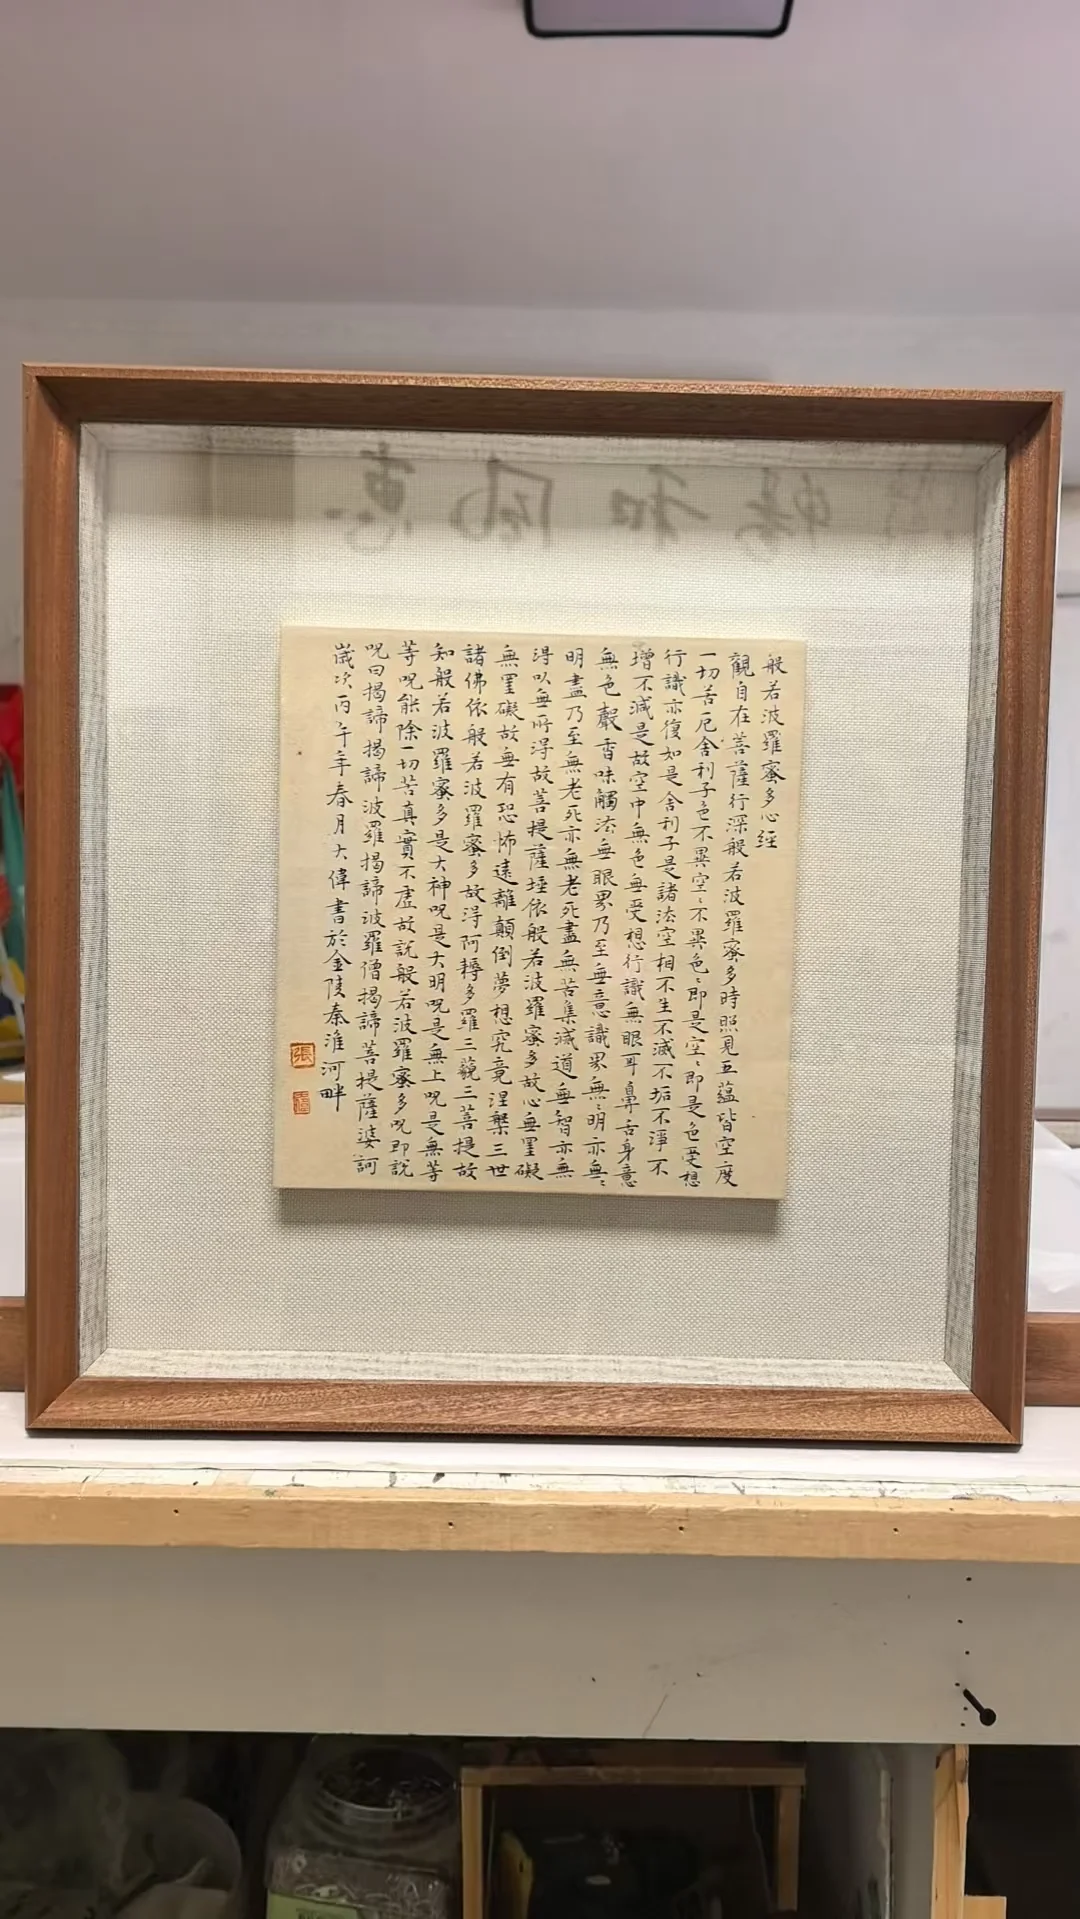 般若波羅蜜多心經
觀自在菩薩行深般若波羅蜜多時照見五蘊皆空度
一切苦厄舍利子色不異空〻不異色〻即是空〻即是色受想
行識亦復如是舍利子是諸法空相不生不滅不垢不淨不
增不減是故空中無色無受想行識無眼耳鼻舌身意
無色聲香味觸法無眼界乃至無意識界無〻明亦無〻
明盡乃至無老死亦無老死盡無苦集滅道無智亦無
得以無所得故菩提薩埵依般若波羅蜜多故心無罣礙
無罣礙故無有恐怖遠離顛倒夢想究竟涅槃三世
諸佛依般若波羅蜜多故得阿耨多羅三藐三菩提故
知般若波羅蜜多是大神咒是大明咒是無上咒是無等
等咒能除一切苦真實不虛故說般若波羅蜜多咒即說
咒曰揭諦揭諦波羅揭諦波羅僧揭諦菩提薩婆訶
歲次丙午年春月大偉書於金陵秦淮河畔
張
惠風和暢